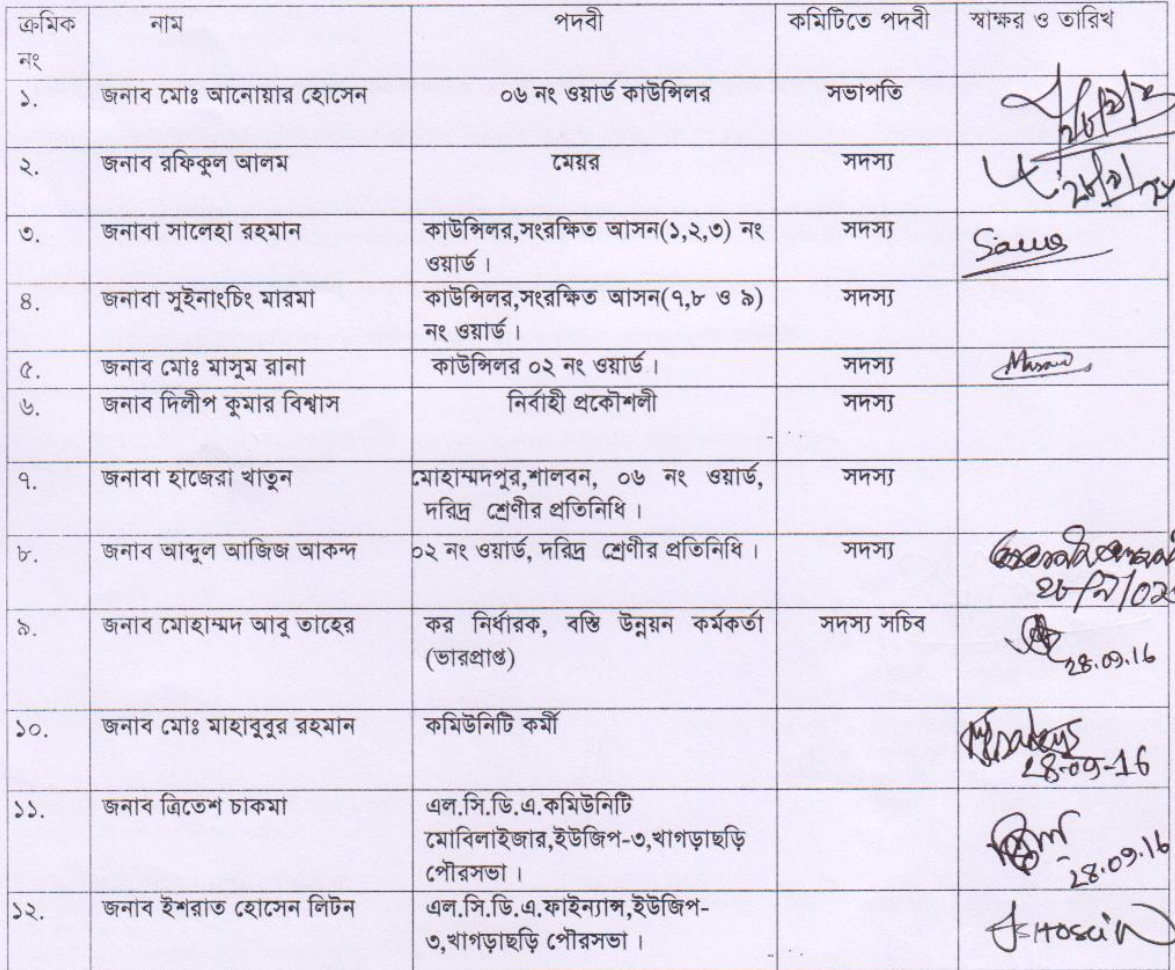 ক্রমিক নাম পদবী কমিটিতে পদবী স্বাক্ষর ও তারিখ
নং
১. জনাব মোঃ আনোয়ার হোসেন ০৬ নং ওয়ার্ড কাউন্সিলর সভাপতি
২. জনাব রফিকুল আলম মেয়র সদস্য
৩. জনাবা সালেহা রহমান কাউন্সিলর,সংরক্ষিত আসন(১,২,৩) নং সদস্য
ওয়ার্ড ।
৪. জনাবা সুইনাংচিং মারমা কাউন্সিলর,সংরক্ষিত আসন(৭,৮ ও ৯) সদস্য
নং ওয়ার্ড ।
৫. জনাব মোঃ মাসুম রানা কাউন্সিলর ০২ নং ওয়ার্ড । সদস্য
৬. জনাব দিলীপ কুমার বিশ্বাস নির্বাহী প্রকৌশলী সদস্য
৭. জনাবা হাজেরা খাতুন মোহাম্মদপুর,শালবন, ০৬ নং ওয়ার্ড, সদস্য
দরিদ্র শ্রেণীর প্রতিনিধি ।
৮. জনাব আব্দুল আজিজ আকন্দ ০২ নং ওয়ার্ড, দরিদ্র শ্রেণীর প্রতিনিধি । সদস্য
৯. জনাব মোহাম্মদ আবু তাহের কর নির্ধারক, বস্তি উন্নয়ন কর্মকর্তা সদস্য সচিব
(ভারপ্রাপ্ত)
28.09.16
১০. জনাব মোঃ মাহাবুবুর রহমান কমিউনিটি কর্মী
28-09-16
১১. জনাব ত্রিতেশ চাকমা এল.সি.ডি.এ.কমিউনিটি
মোবিলাইজার,ইউজিপ-৩,খাগড়াছড়ি
পৌরসভা ।
28.09.16
১২. জনাব ইশরাত হোসেন লিটন এল.সি.ডি.এ.ফাইন্যান্স,ইউজিপ-
৩,খাগড়াছড়ি পৌরসভা ।